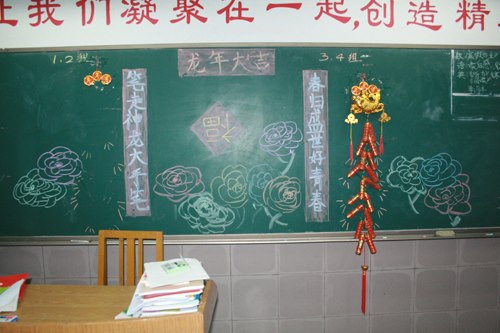 让我们凝聚在一起,创造精
龙年大吉
3.4组
笔走神龙大手笔
福
春归盛世好青春